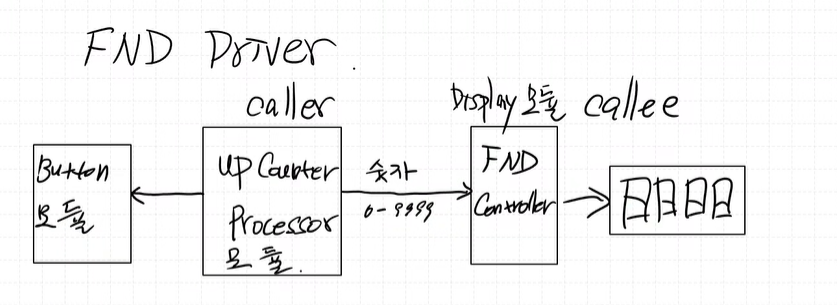 FND Driver.
caller
Display 모듈 callee
Button
모듈
UP Counter
Processor
모듈.
숫자
0-9999
FND
Controller